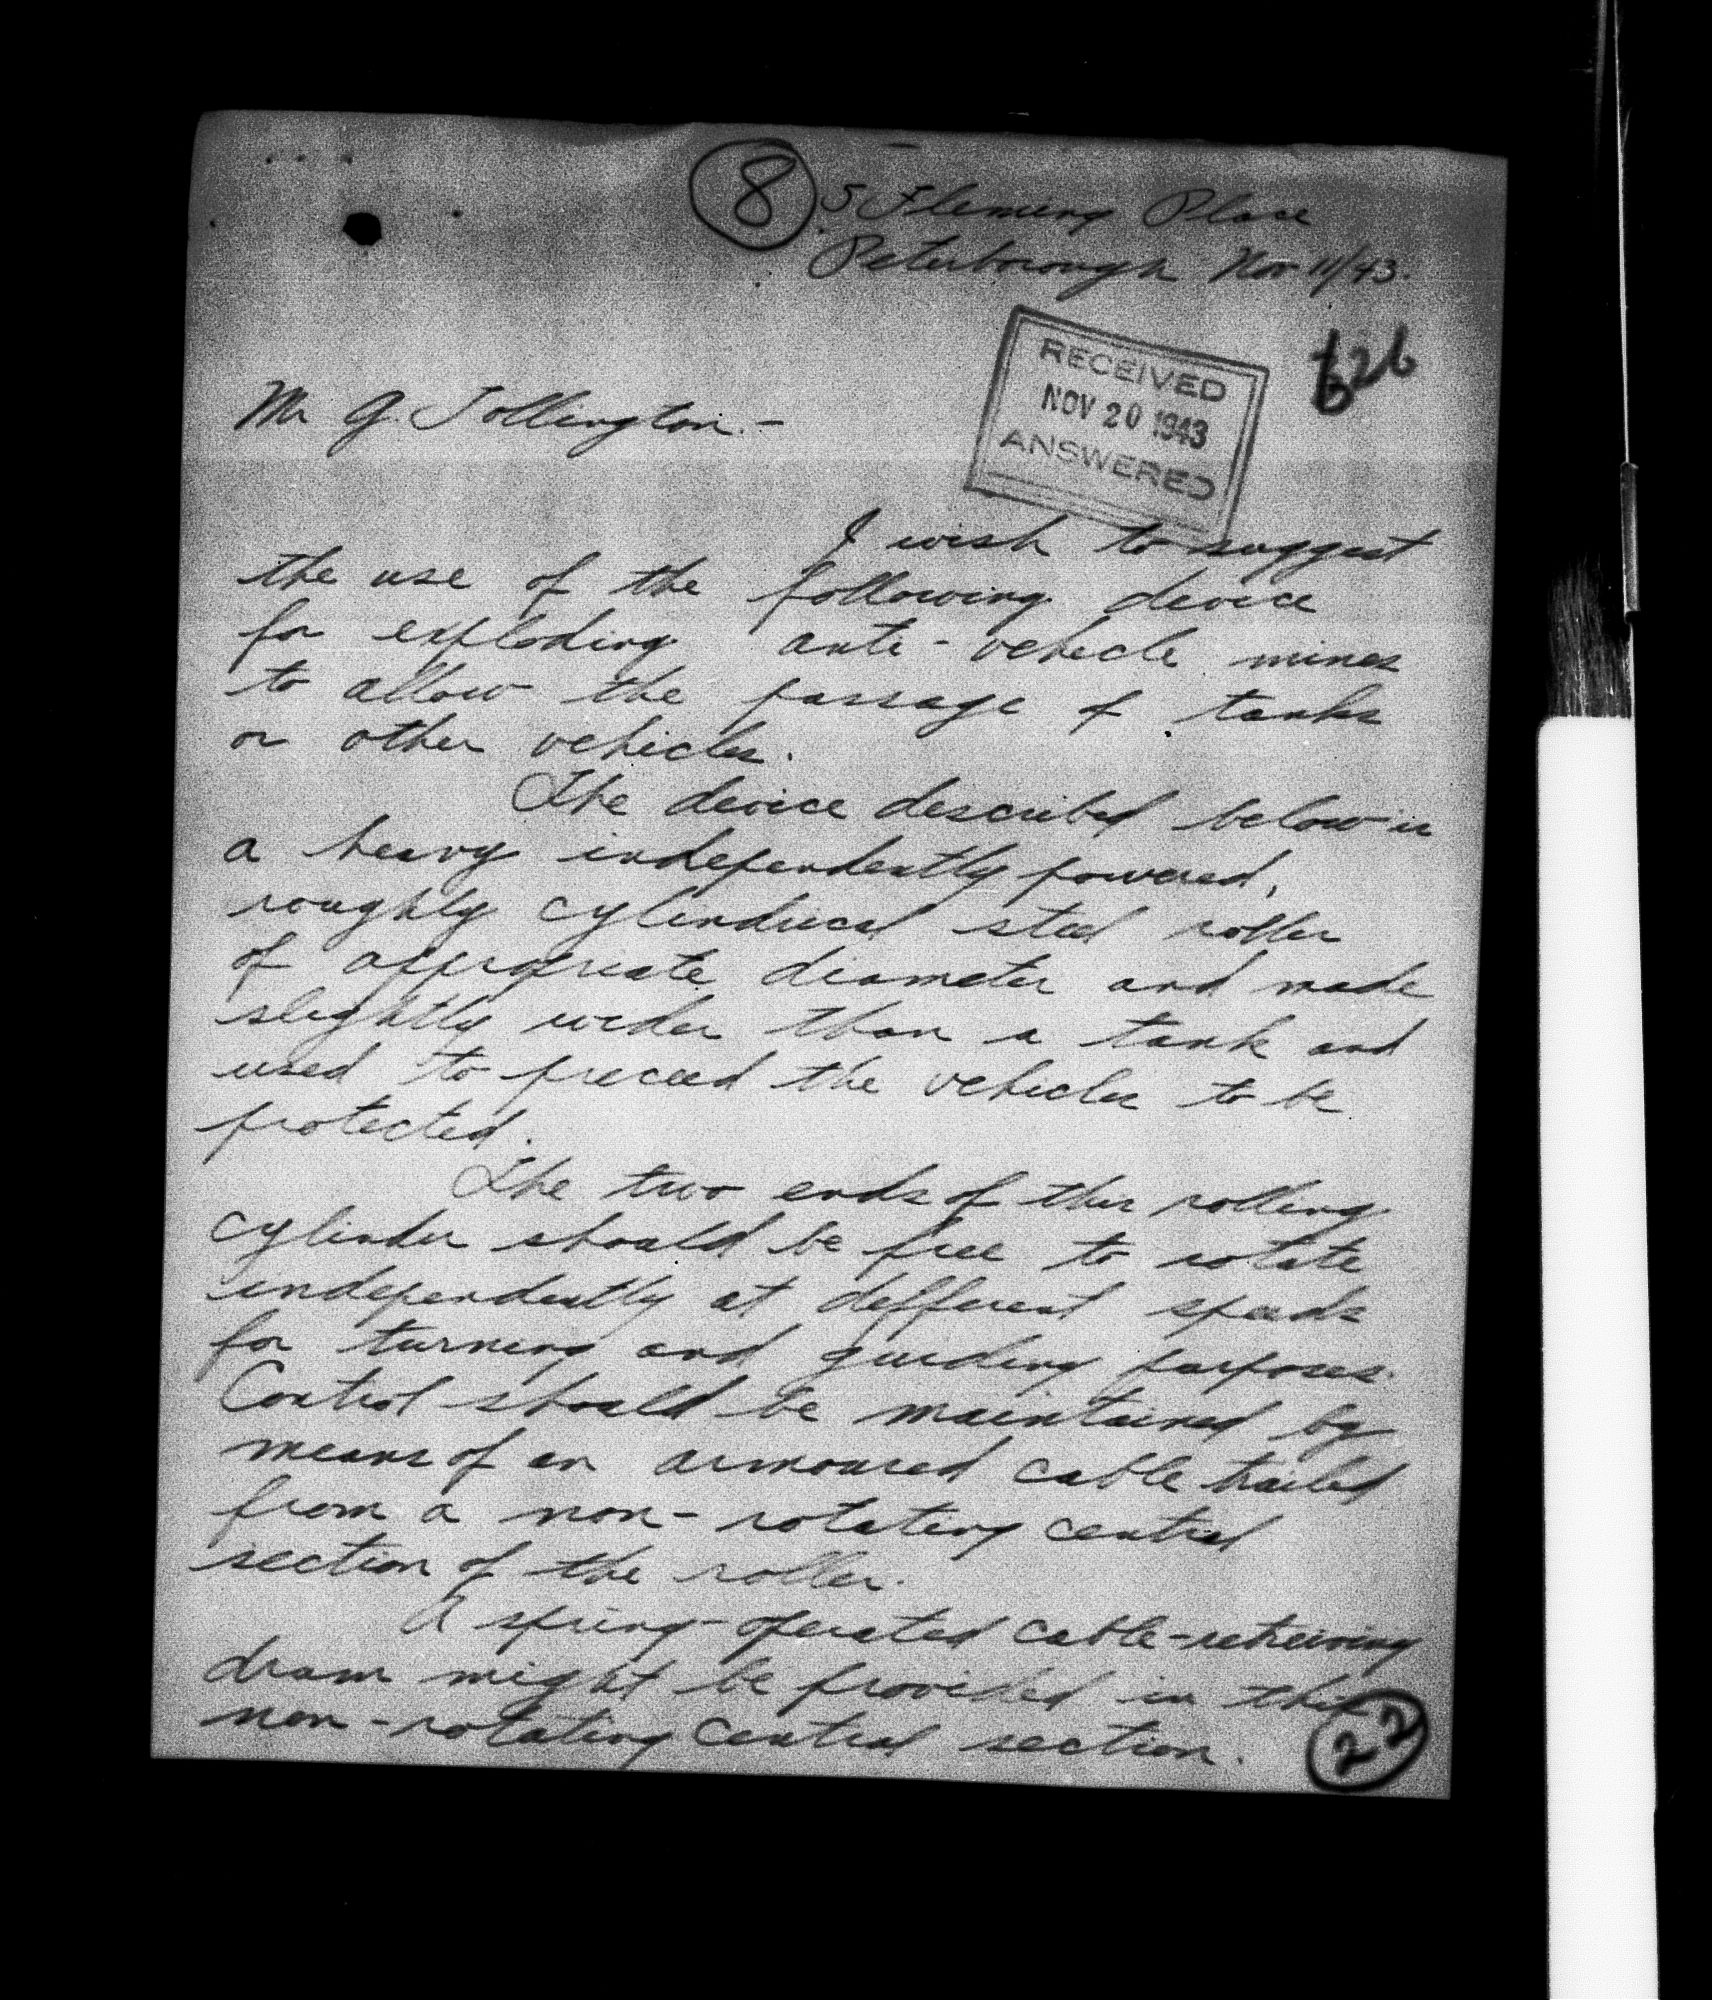 8
5 Fleming Place
Peterborough Nov 11/43.
RECEIVED
NOV 20 1943
ANSWERED
Mr G. Tollington.-
I wish to suggest
the use of the following device
for exploding anti-vehicle mines
to allow the passage of tanks
or other vehicles.
The device described below is
a heavy independently powered,
roughly cylindrical steel roller
of appropriate diameter and made
slightly wider than a tank and
used to preceed the vehicles to be
protected.
The two ends of this rolling
cylinder should be free to rotate
independently at different speeds
for turning and guiding purposes.
Control should be maintained by
means of an armoured cable trailed
from a non-rotating central
section of the roller.
A spring-operated cable-retreiving
drum might be provided in this
non-rotating central section.
22